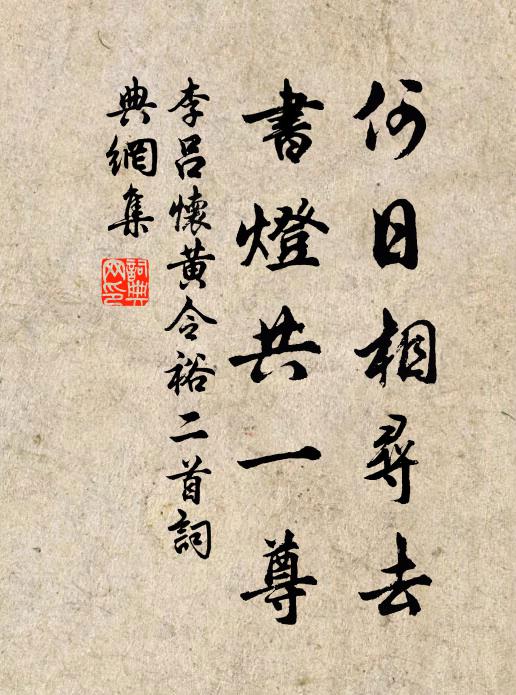 何日相尋去
書燈共一尊
李呂懷黃令裕二首詞
典網集
詞典
网印